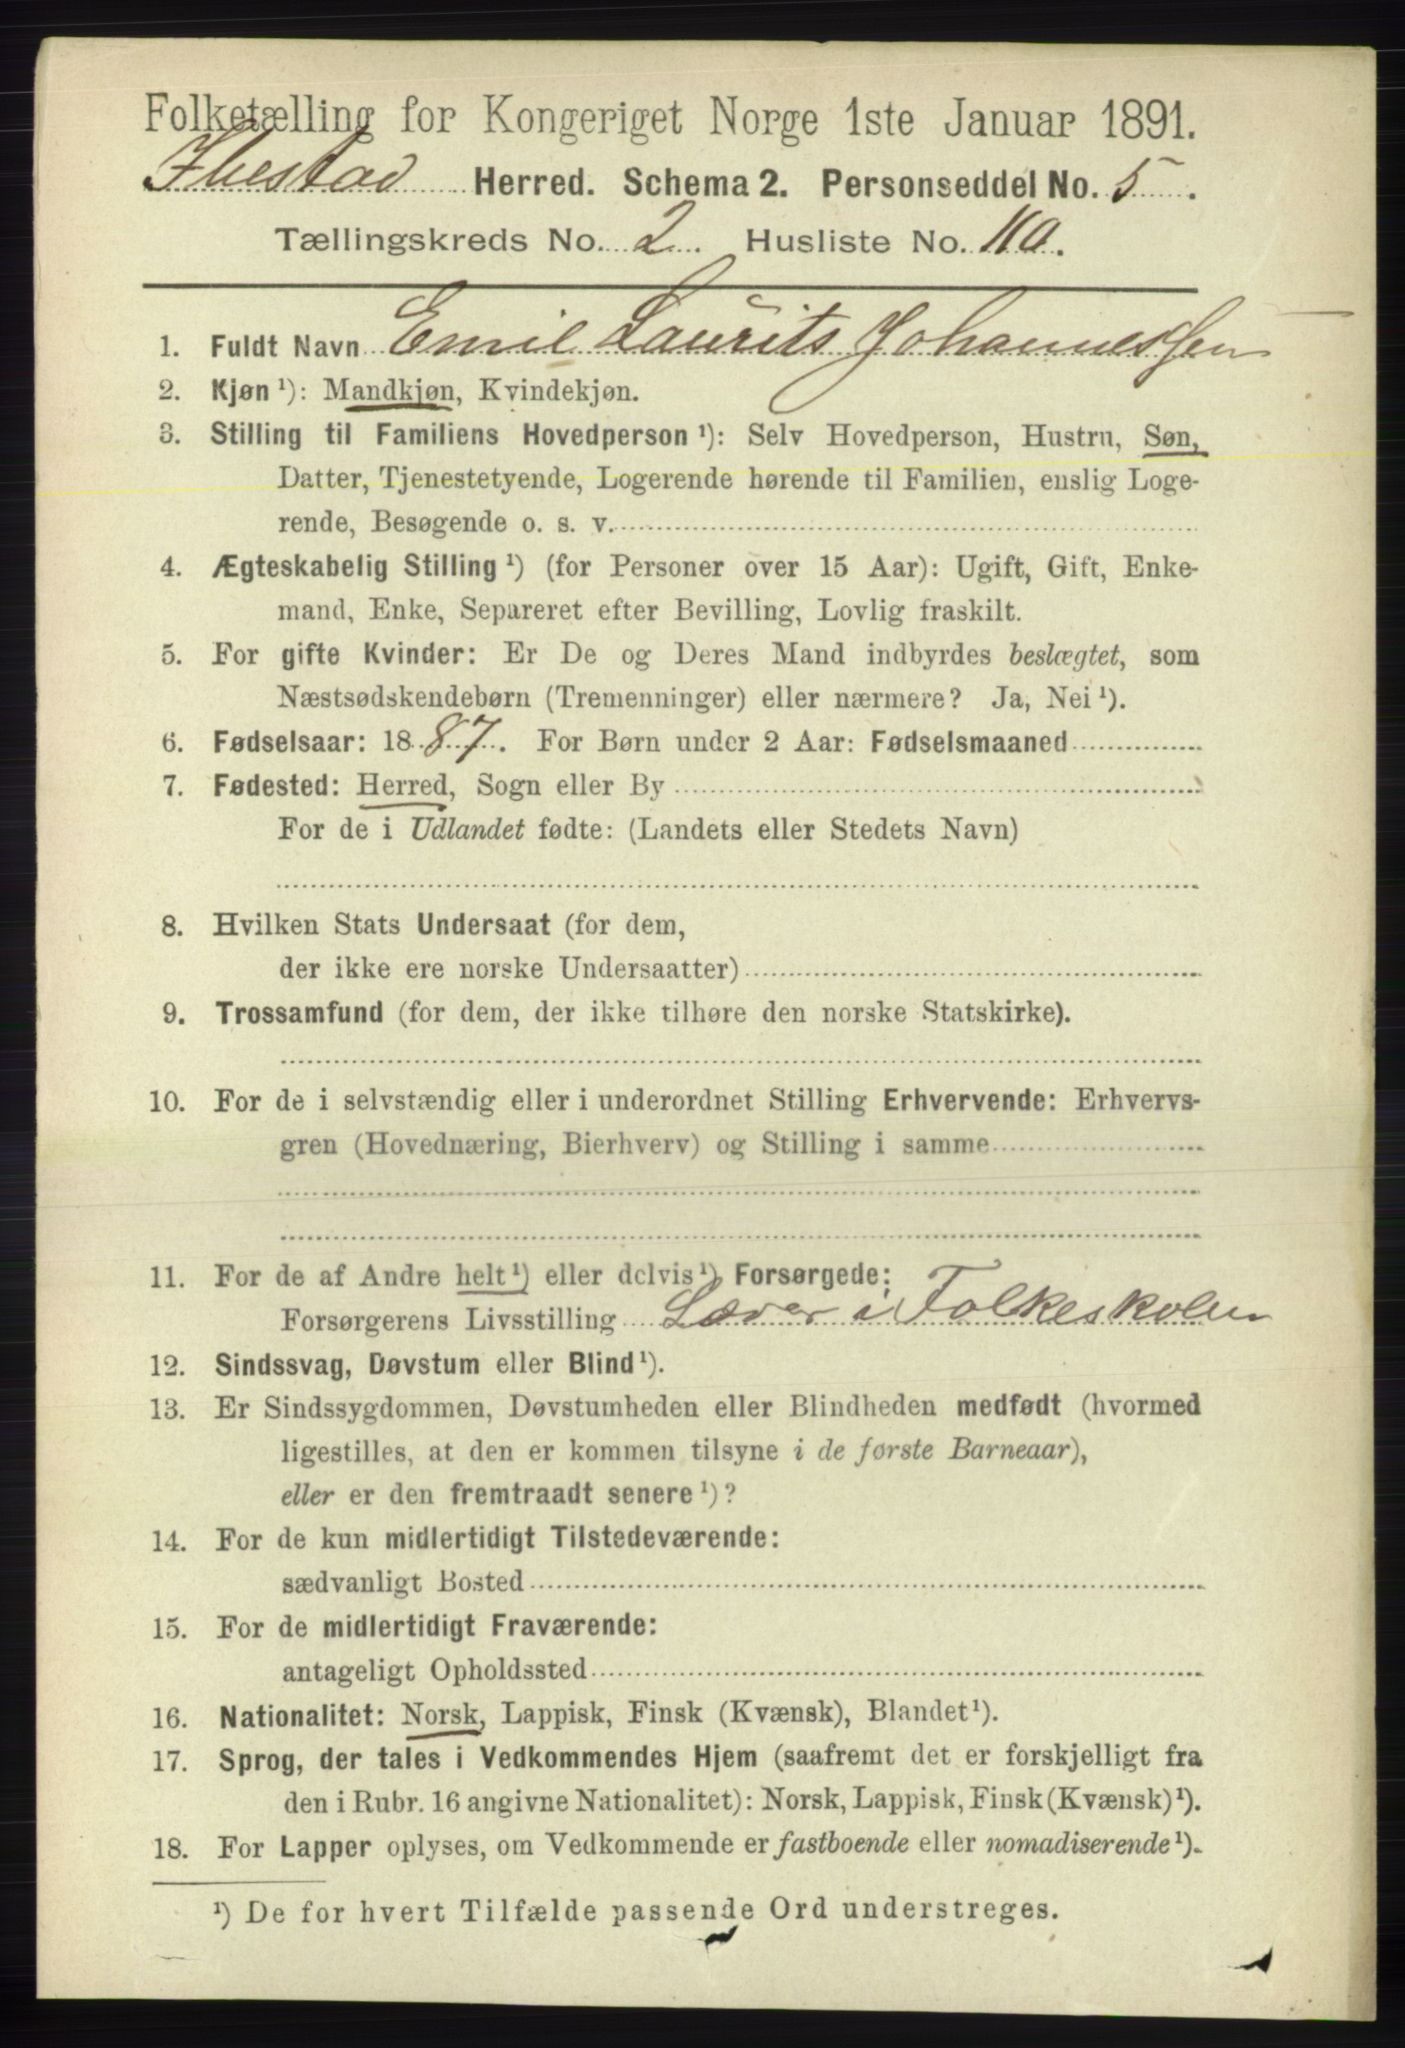 Folketælling for Kongeriget Norge 1ste Januar 1891.
Ibestad Herred. Schema 2. Personseddel No. 5.
Tællingskreds No. 2. Husliste No. 110.
1. Fuldt Navn Emil Laurits Johannessen
2. Kjøn ¹): Mandkjøn, Kvindekjøn.
3. Stilling til Familiens Hovedperson ¹): Selv Hovedperson, Hustru, Søn,
Datter, Tjenestetyende, Logerende hørende til Familien, enslig Loge-
rende, Besøgende o. s. v.
4. Ægteskabelig Stilling ¹) (for Personer over 15 Aar): Ugift, Gift, Enke-
mand, Enke, Separeret efter Bevilling, Lovlig fraskilt.
5. For gifte Kvinder: Er De og Deres Mand indbyrdes beslægtet, som
Næstsødskendebørn (Tremenninger) eller nærmere? Ja, Nei ¹).
6. Fødselsaar: 1887. For Børn under 2 Aar: Fødselsmaaned
7. Fødested: Herred, Sogn eller By
For de i Udlandet fødte: (Landets eller Stedets Navn)
8. Hvilken Stats Undersaat (for dem,
der ikke ere norske Undersaatter)
9. Trossamfund (for dem, der ikke tilhøre den norske Statskirke).
10. For de i selvstændig eller i underordnet Stilling Erhvervende: Erhvervs-
gren (Hovednæring, Bierhverv) og Stilling i samme
11. For de af Andre helt ¹) eller delvis ¹) Forsørgede:
Forsørgerens Livsstilling Lærer i Folkeskolen
12. Sindssvag, Døvstum eller Blind ¹).
13. Er Sindssygdommen, Døvstumheden eller Blindheden medfødt (hvormed
ligestilles, at den er kommen tilsyne i de første Barneaar),
eller er den fremtraadt senere ¹)?
14. For de kun midlertidigt Tilstedeværende:
sædvanligt Bosted
15. For de midlertidigt Fraværende:
antageligt Opholdssted
16. Nationalitet: Norsk, Lappisk, Finsk (Kvænsk), Blandet ¹).
17. Sprog, der tales i Vedkommendes Hjem (saafremt det er forskjelligt fra
den i Rubr. 16 angivne Nationalitet): Norsk, Lappisk, Finsk (Kvænsk) ¹).
18. For Lapper oplyses, om Vedkommende er fastboende eller nomadiserende ¹).
¹) De for hvert Tilfælde passende Ord understreges.